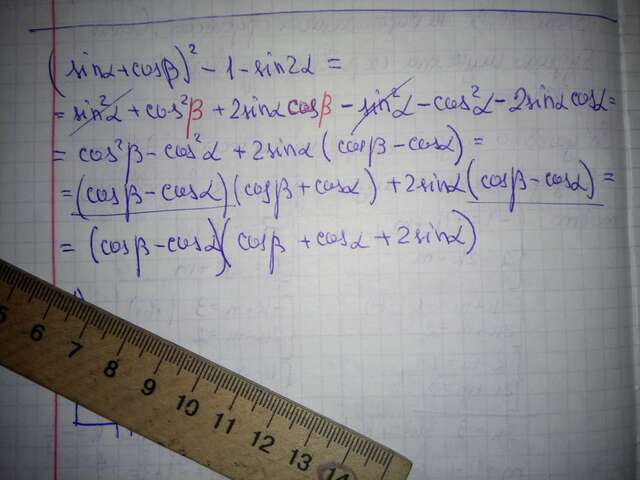 (sinα + cosβ)² - 1 - sin2α =
= sin²α + cos²β + 2sinα cosβ - sin²α - cos²α - 2sinα cosα =
= cos²β - cos²α + 2sinα (cosβ - cosα) =
= (cosβ - cosα)(cosβ + cosα) + 2sinα (cosβ - cosα) =
= (cosβ - cosα)(cosβ + cosα + 2sinα)
5 6 7 8 9 10 11 12 13 14